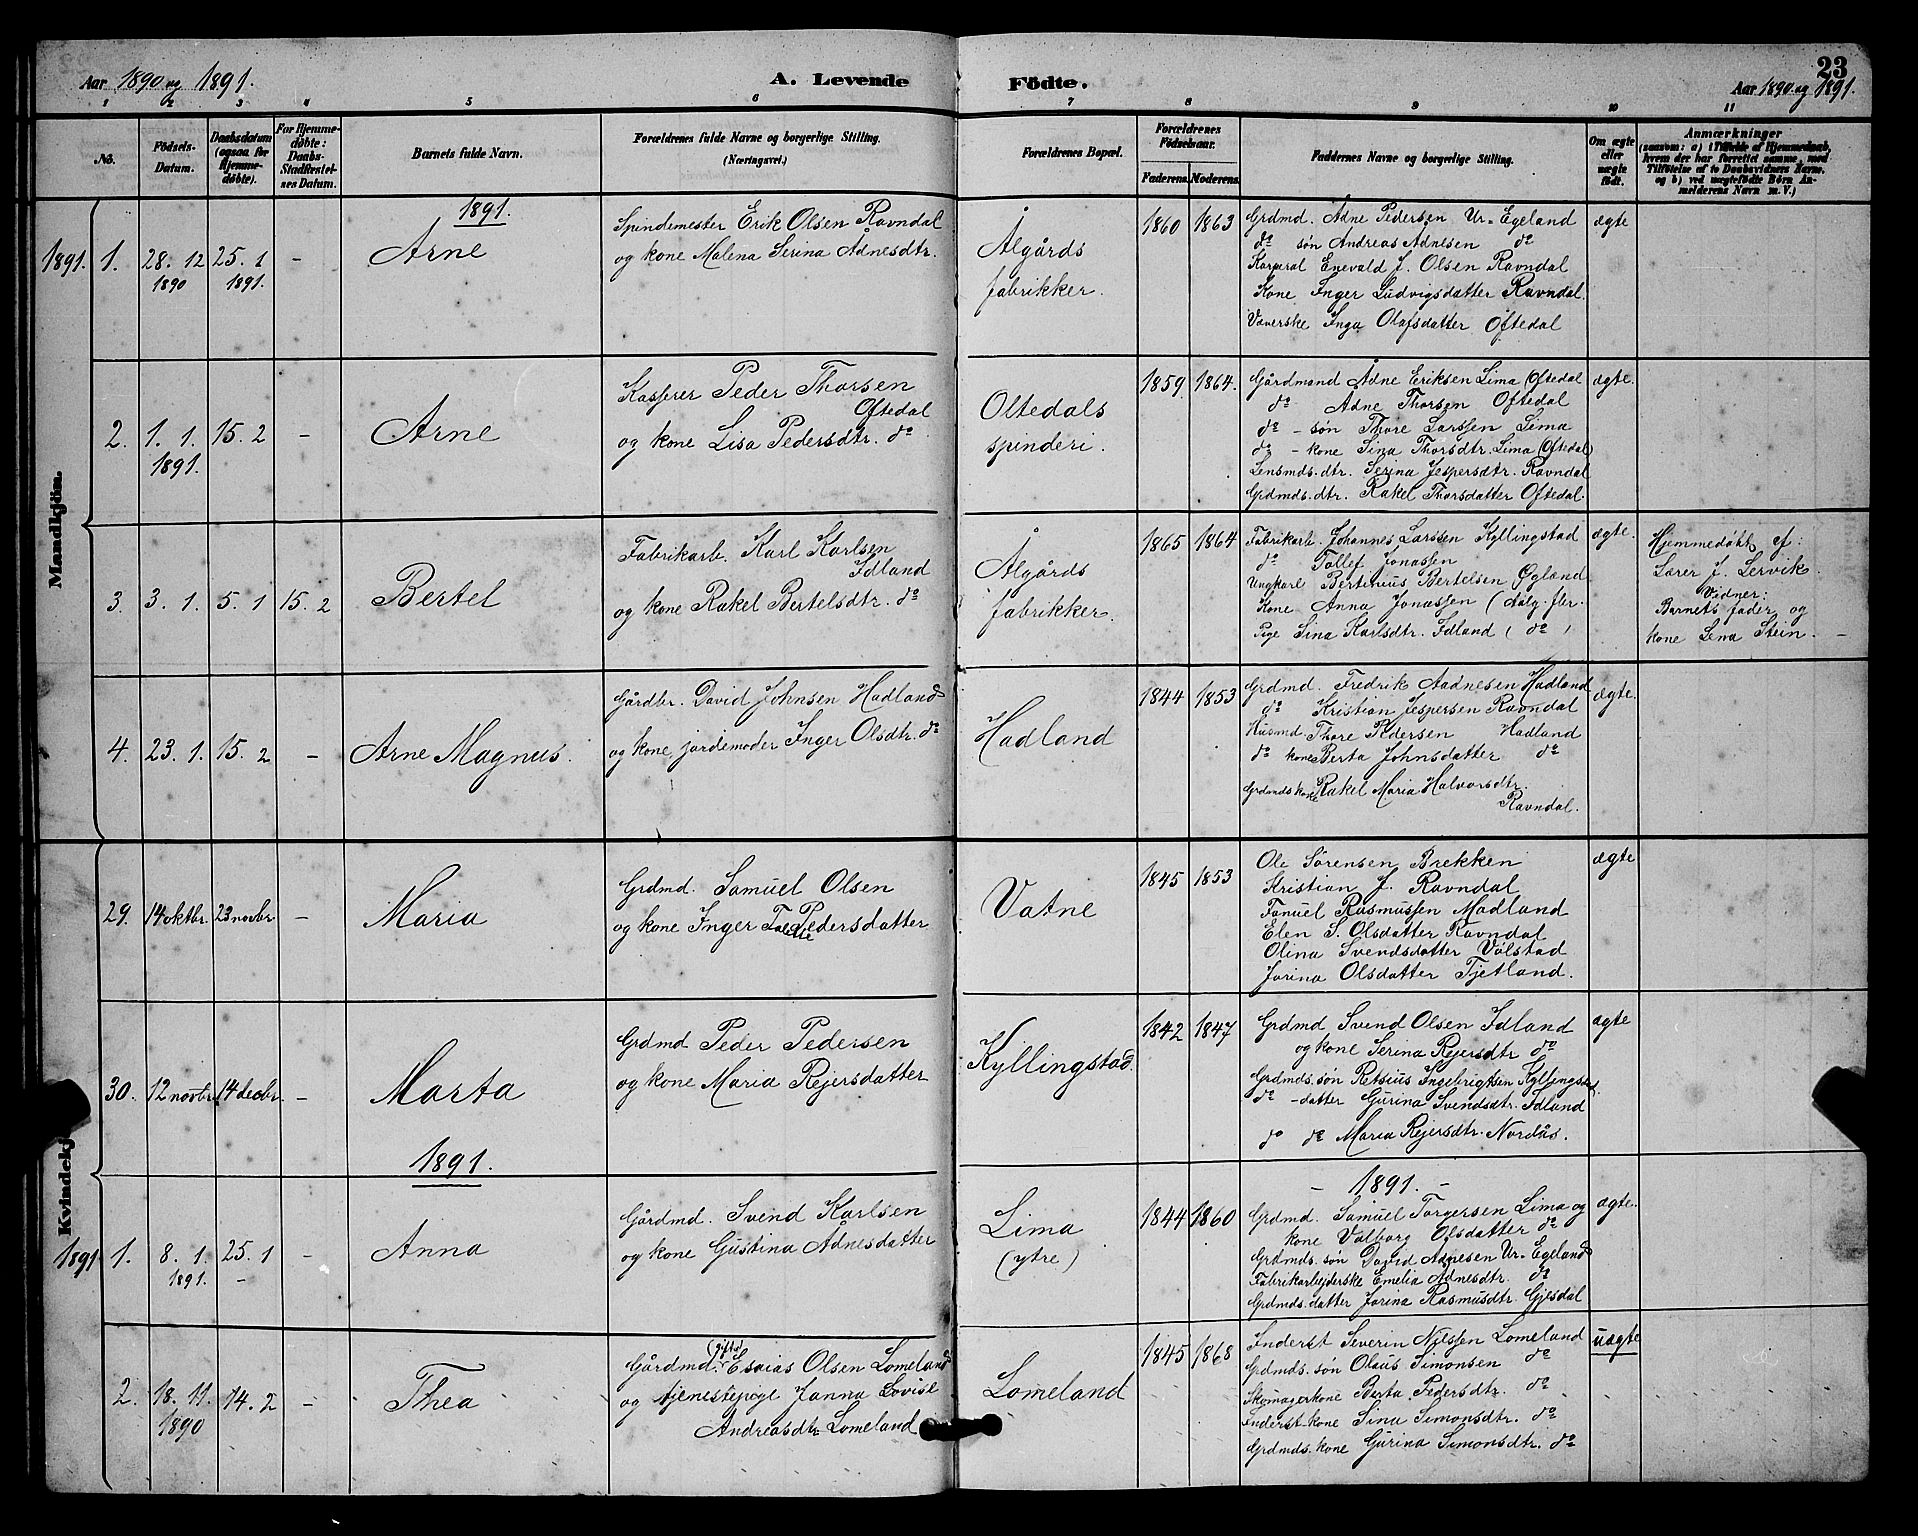 23
Aar 1890 og 1891. A. Levende Födte. Aar 1890 og 1891.
1 2 3 4 5 6 7 8 9 10 11
No.
Födsels-
Datum.
Daabsdatum
(ogsaa for
Hjemme-
døbte).
For Hjemme-
døbte:
Daabs-
Stadfæstel-
ses Datum.
Barnets fulde Navn.
Forældrenes fulde Navne og borgerlige Stilling.
(Næringsvei.)
Forældrenes Bopæl.
Forældrenes
Fødselsaar.
Faderens. Moderens.
Faddernes Navne og borgerlige Stilling.
Om ægte
eller
uægte
født.
Anmærkninger
(saasom: a) i Tilfælde af Hjemmedaab,
hvem der har forrettet samme, med
Tilføielse af to Daabsvidners Navne,
og b) ved uægtefødte Børn An-
melderens Navn m. V.)
Mandkjön.
1891.
1891. 1. 28. 12 1890
25. 1 1891.
-
Arne
Spindemester Erik Olsen Ravndal
og kone Malena Serina Ådnesdtr.
Ålgårds
fabrikker.
1860 1863
Grdmd. Adne Pedersen Ur-Egeland
do søn Andreas Adnesen do
Korperal Enevald J. Olsen Ravndal
Kone Inger Ludvigsdatter Ravndal.
Væverske Inga Olafsdatter Oftedal
ægte
2. 1. 1. 1891.
15. 2
-
Arne
Kasserer Peder Thorsen
Oftedal
og kone Lisa Pedersdtr. do
Oltedals
spinderi.
1859 1864.
Gårdmand Adne Eriksen Lima (Oftedal
do Adne Thorsen Oftedal
do - søn Thore Larssen Lima
do - kone Sina Thorsdtr. Lima (Oftedal)
Lensmds. dtr. Serina Jespersdtr. Ravndal
Grdmds. dtr. Rakel Thorsdatter Oftedal.
ægte.
3. 3. 1. 5. 1 15. 2
Bertel
Fabrikarb. Karl Karlsen
Idland
og kone Rakel Bertelsdtr. do
Ålgårds
fabrikker.
1865 1864
Fabrikarb. Johannes Larssen Kyllingstad
do Tollef Jonassen
Ungkarl Bertinius Bertelsen Øgland
Kone Anna Jonassen (Aalg. fbr.
Pige Sina Karlsdtr. Idland (do)
ægte.
Hjemmedøbt af:
Lærer J. Lervik
Vidner:
Barnets fader og
kone Lena Stein. -
4. 23. 1. 15. 2 -
Arne Magnus.
Gårdbr. David Johnsen Hadland
og kone, jordemoder Inger Olsdtr. do
Hadland
1844 1853
Grdmd. Fredrik Aadnesen Hadland
do Kristian Jespersen Ravndal
Husmd. Thore Pedersen Hadland
do kone Berta Johnsdatter do
Grdmds kone Rakel Maria Halvorsdtr.
Ravndal.
ægte.
Kvindekj
29. 14 oktbr. 23 novbr -
Maria
Grdmd. Samuel Olsen
og kone Inger Pedersdatter
Vatne
1845 1853
Ole Sörensen Brekken
Kristian J. Ravndal
Tanuel Rasmussen Madland
Elen S. Olsdatter Ravndal
Olina Svendsdatter Vølstad
Jorina Olsdatter Tjetland.
ægte
30. 12 novbr. 14 decbr. -
Marta
Grdmd Peder Pedersen
og kone Maria Rejersdatter
Kyllingstad
1842 1847
Grdmd Svend Olsen Idland
og kone Serina Rejersdtr do
Grdmds. søn Retsius Ingebrigtsen Kyllingstad.
do - datter Gurina Svendsdtr. Idland
do do Maria Rejersdtr. Nordås.
ægte
1891.
1891 1. 8. 1. 1891.
25. 1
-
Anna
Gårdmd. Svend Karlsen
og kone Gustina Ådnesdatter
Lima
(ytre)
1844 1860
- 1891. -
Grdmd. Samuel Torgersen Lima og
kone Valborg Olsdatter do
Grdmds. søn David Adnesen Ur-Egeland
Fabrikarbejderske Emelia Adnesdtr. do
Grdmds. datter Jorina Rasmusdtr. Gjesdal
ægte.
2. 18. 11. 1890
14. 2
-
Thea
(gift)
Gårdmd. Esaias Olsen Lomeland
og tjenestepige Janna Lovise
Andreasdtr Lomeland
Lomeland
1845 1868
Inderst Severin Nilssen Lomeland
Grdmds. søn Olaus Simonsen do
Skomagerkone Berta Pedersdtr. do
Inderst-kone Sina Simonsdtr. do
Grdmds. kone Gurina Simonsdtr. do
uægte